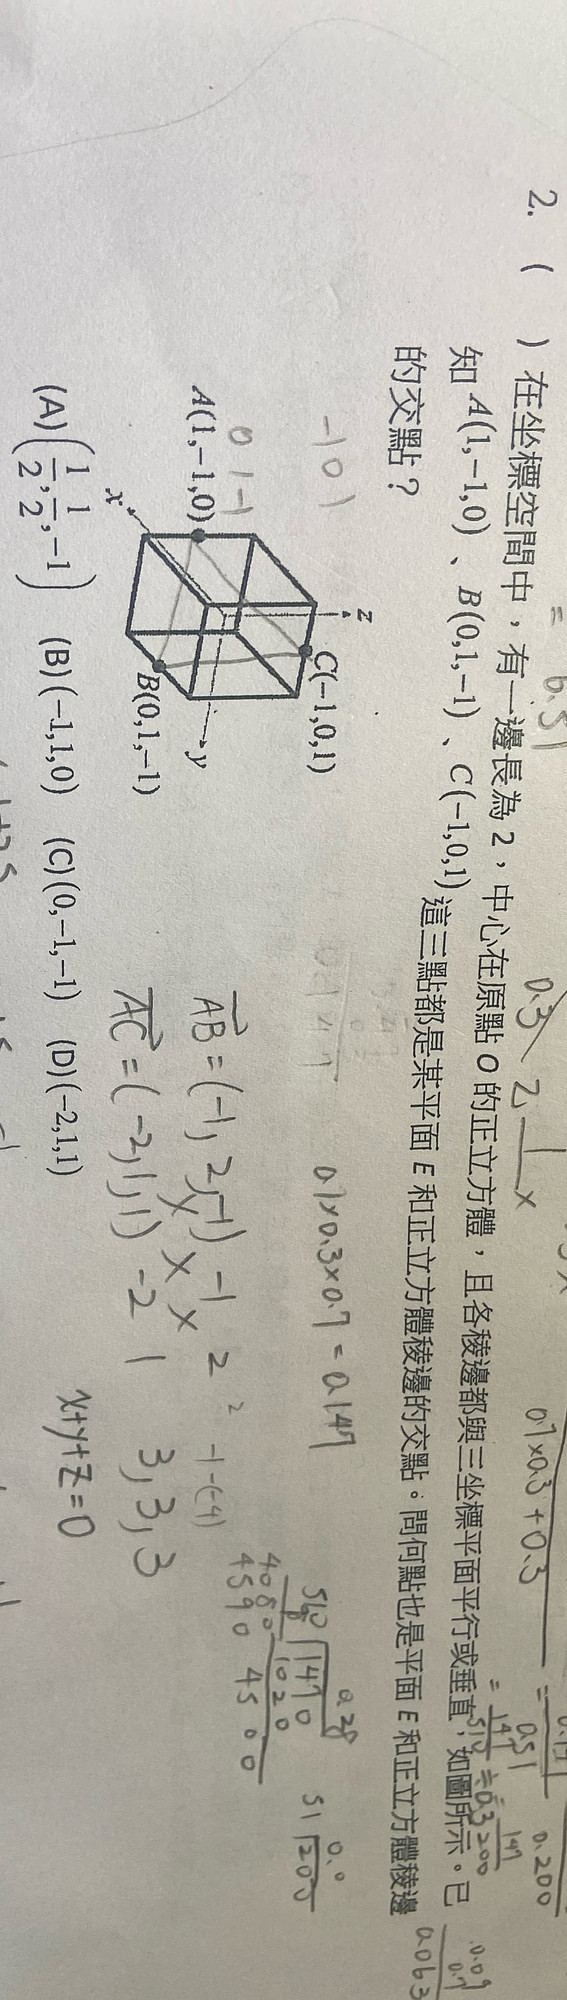 2. ( ) 在坐標空間中，有一邊長為 2，中心在原點 O 的正立方體，且各稜邊都與三坐標平面平行或垂直，如圖所示。已
知 A(1,−1,0)、B(0,1,−1)、C(−1,0,1) 這三點都是某平面 E 和正立方體稜邊的交點。問何點也是平面 E 和正立方體稜邊
的交點？
−1 0 1
0 1 −1
z
C(−1,0,1)
A(1,−1,0)
y
B(0,1,−1)
x
(A) (1/2, 1/2, −1) (B) (−1,1,0) (C) (0,−1,−1) (D) (−2,1,1)
= 0.51
0.3
2.
x
0.7×0.3+0.3
0.51
0.200
= 147/510 ≒ 0.3
147
200
0.7×0.3×0.7 = 0.147
AB = (−1, 2, −1) −1 2
AC = (−2, 1, 1) −2 1
2
−1−(−4)
3, 3, 3
x+y+z=0
0.28
510 1470
1020
4500
4080
4590
0.0
51 200
0.09
0.7
0.063